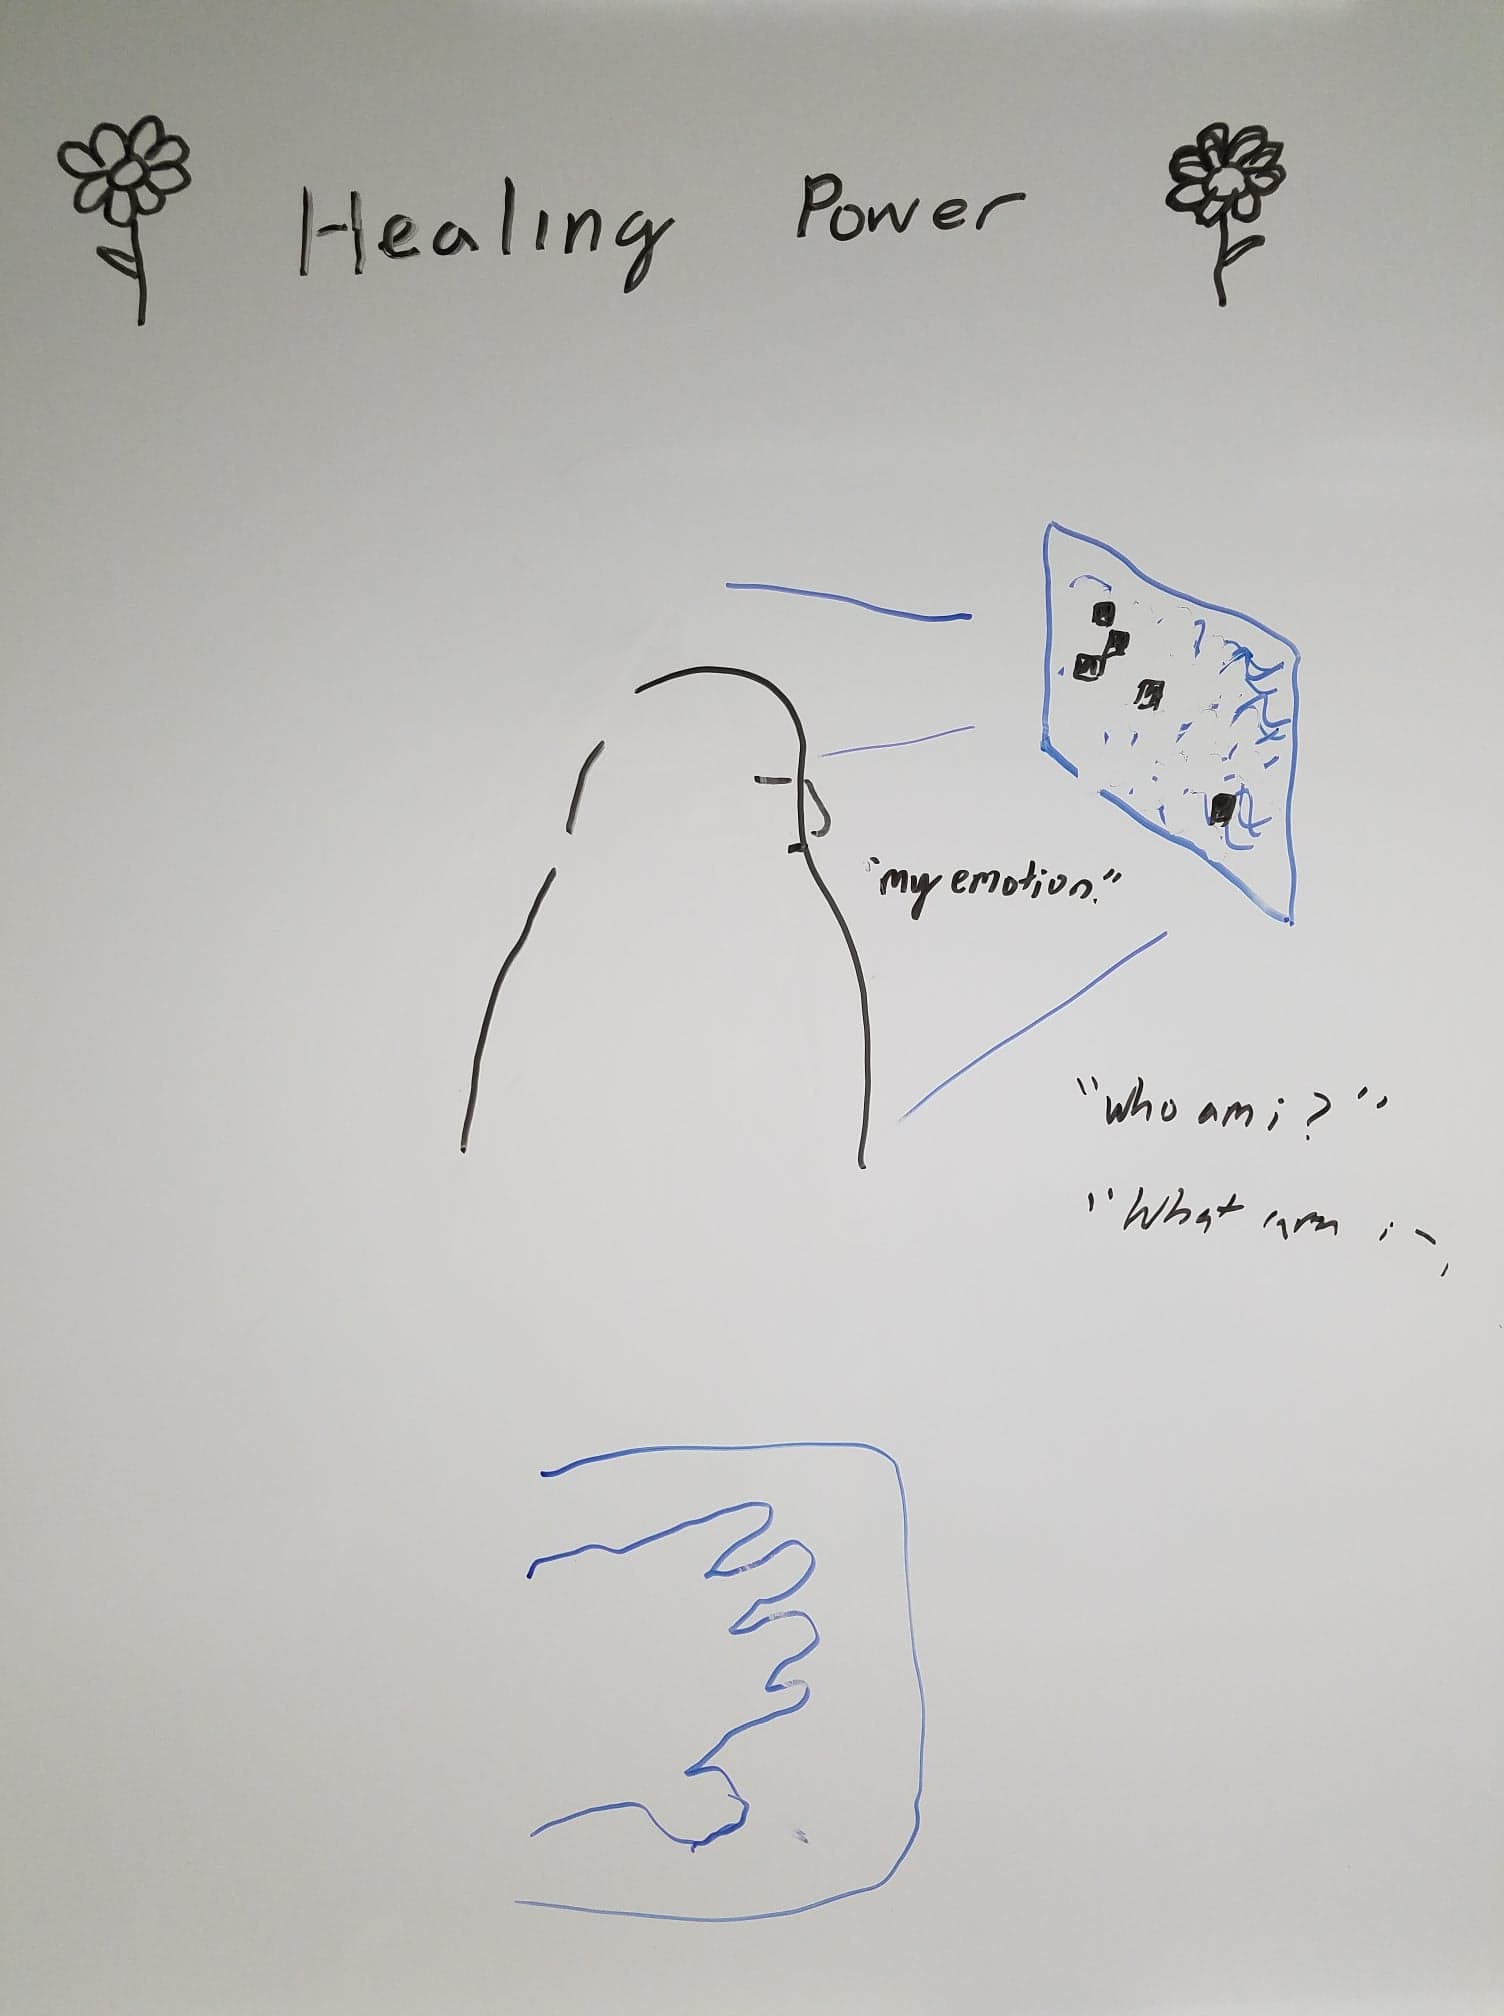 Healing Power
"my emotion."
"Who am i?"
"What am i